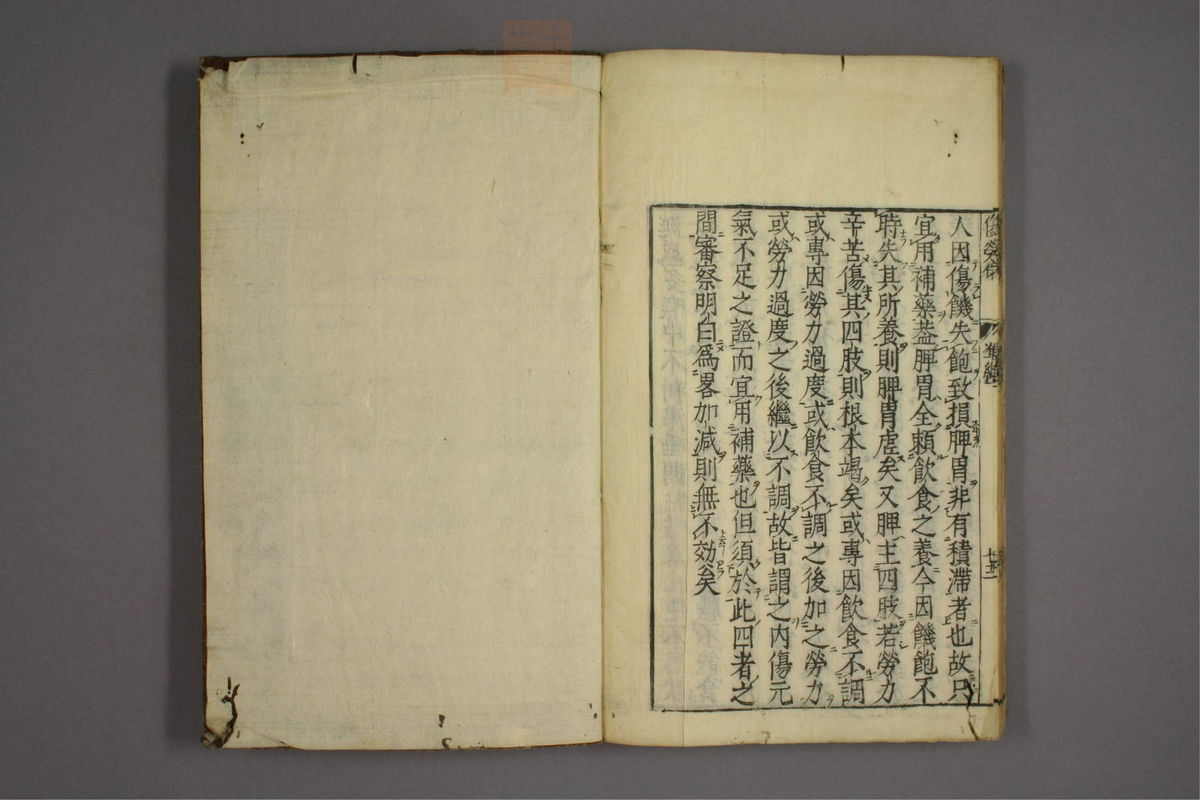 人因傷饑失飽致損脾胃非有積滯者也故只
宜用補藥葢脾胃全頼飲食之養今因饑飽不
時失其所養則脾胃虗矣又脾主四肢若勞力
辛苦傷其四肢則根本竭矣或專因飲食不調
或專因勞力過度或飲食不調之後加之勞力
或勞力過度之後繼以不調故皆謂之内傷元
氣不足之證而宜用補藥也但須於此四者之
間審察明白爲畧加減則無不効矣